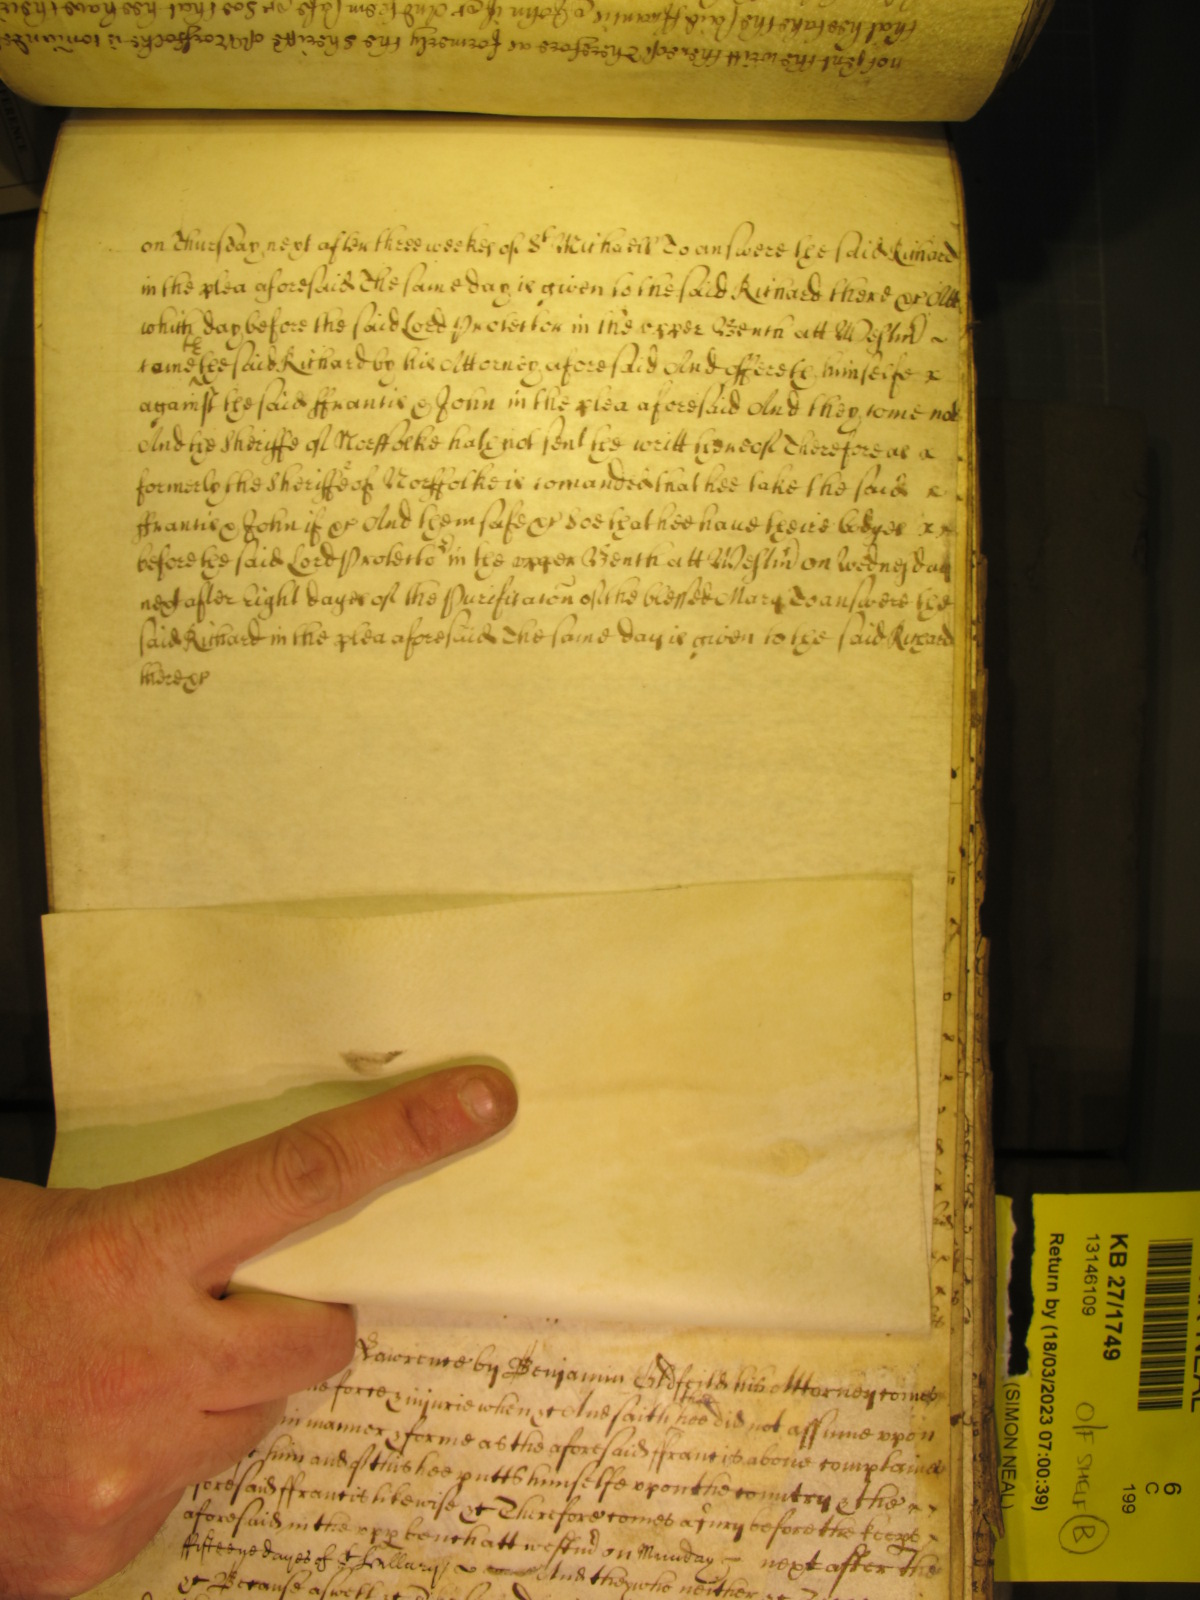 not sent the writt thereof Therefore as formerly the Sheriffe of Norffolke is comanded
that hee take the said ffrancis & John if &c And them safe &c Soe that hee have theire
on Thursday next after three weekes of St Michaell To answere the said Richard
in the plea aforesaid The same day is given to the said Richard there &c Att
which day before the said Lord Protector in the upper Bench att Westmr
came the said Richard by his Attorney aforesaid And offereth himselfe x
against the said ffrancis & John in the plea aforesaid And they come not
And the Sheriffe of Norffolke hath not sent the writt thereof Therefore as x
formerly the Sheriffe of Norffolke is comanded that hee take the said x
ffrancis & John if &c And them safe &c Soe that hee have theire bodyes x x
before the said Lord Protector in the upper Bench att Westmr on Wednesday
next after Eight dayes of the Purificacon of the blessed Mary To answere the
said Richard in the plea aforesaid The same day is given to the said Richard
there &c
Lawrence by Benjamin Oldfeild his Attorney comes
force & injurie when &c And saith hee did not assume upon
in manner & forme as the aforesaid ffrancis above complaines
him and of this hee putts himselfe upon the countrey & the x x
foresaid ffrancis likewise &c Therefore comes a jury before the
aforesaid in the upp bench att westmr on Munday next after the
fifteene dayes of And they who neither
&c Because aswell
KB 27/1749
13146109
Return by (18/03/2023 07:00:39)
(SIMON NEAL)
O/F SHELF B
6
C
199